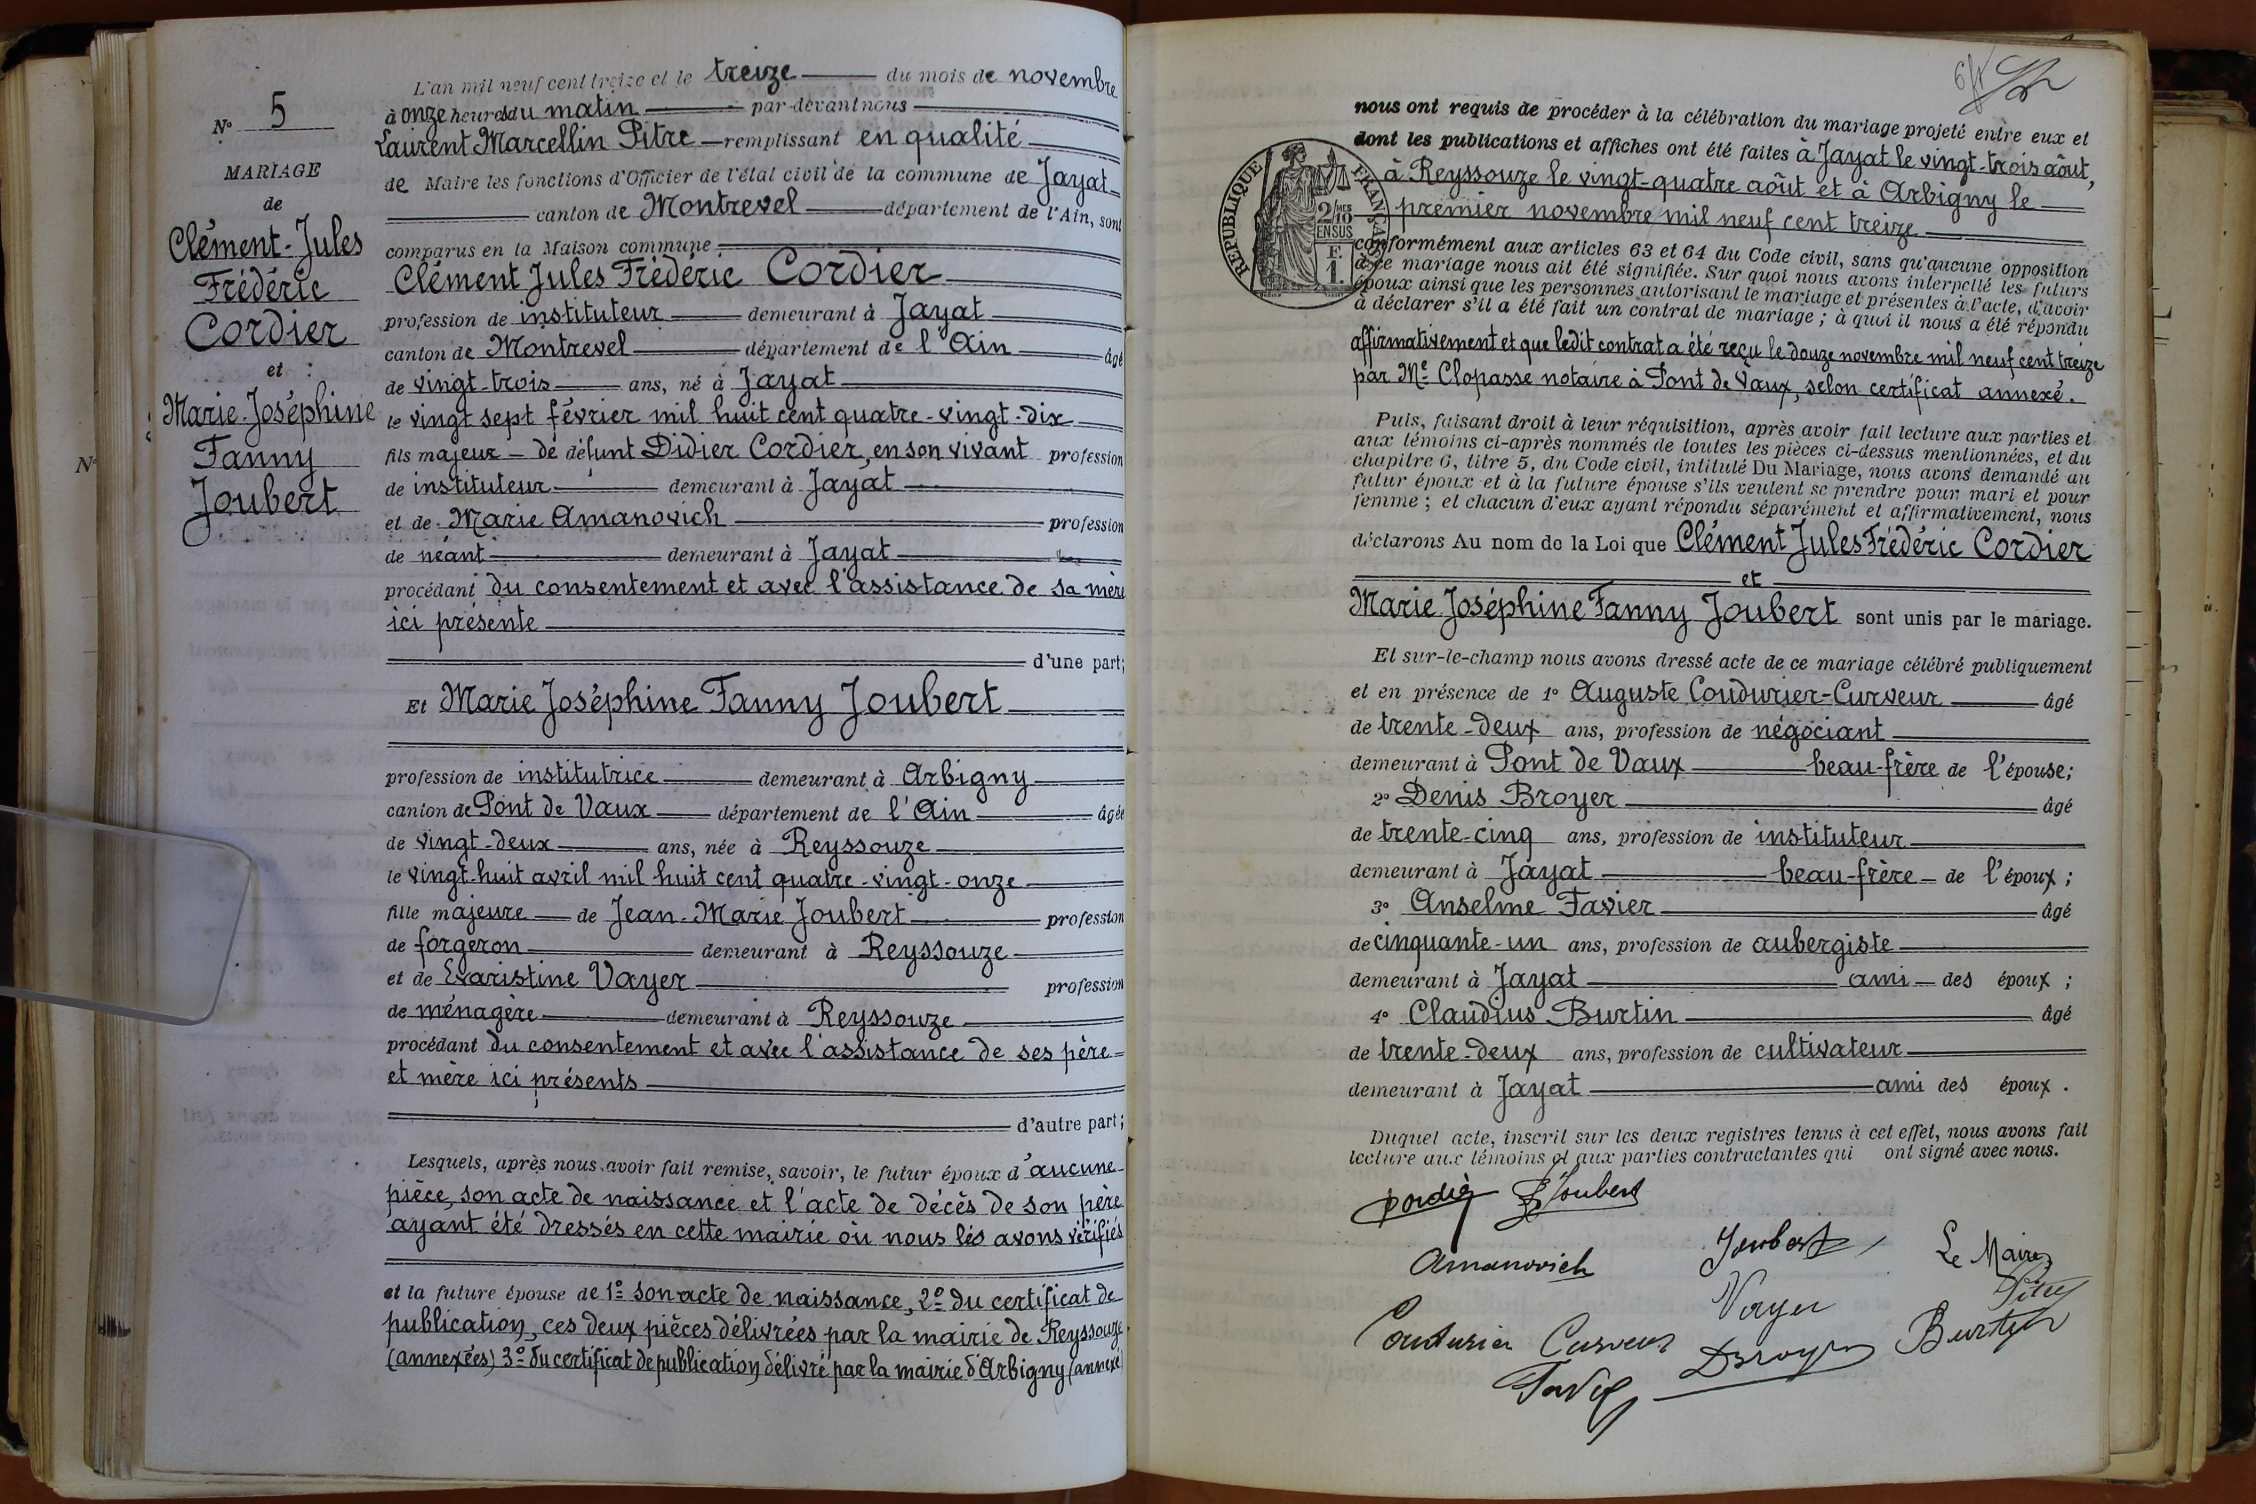 N° 5
MARIAGE
de
Clément-Jules
Frédéric
Cordier
et :
Marie-Joséphine
Fanny
Joubert
N°
L'an mil neuf cent treize et le treize du mois de novembre
à onze heures du matin par-devant nous
Laurent Marcellin Pitre remplissant en qualité
de Maire les fonctions d'Officier de l'état civil de la commune de Jayat
canton de Montrevel département de l'Ain, sont
comparus en la Maison commune
Clément Jules Frédéric Cordier
profession de instituteur demeurant à Jayat
canton de Montrevel département de l'Ain âgé
de vingt-trois ans, né à Jayat
le vingt sept février mil huit cent quatre-vingt-dix
fils majeur de défunt Didier Cordier, en son vivant profession
de instituteur demeurant à Jayat
et de Marie Amanovich profession
de néant demeurant à Jayat
procédant du consentement et avec l'assistance de sa mère
ici présente
d'une part;
Et Marie Joséphine Fanny Joubert
profession de institutrice demeurant à Arbigny
canton de Pont de Vaux département de l'Ain âgée
de vingt-deux ans, née à Reyssouze
le vingt-huit avril mil huit cent quatre-vingt-onze
fille majeure de Jean-Marie Joubert profession
de forgeron demeurant à Reyssouze
et de Evaristine Vayer profession
de ménagère demeurant à Reyssouze
procédant du consentement et avec l'assistance de ses père
et mère ici présents
d'autre part;
Lesquels, après nous avoir fait remise, savoir, le futur époux d'aucune
pièce, son acte de naissance et l'acte de décès de son père
ayant été dressés en cette mairie où nous les avons vérifiés
et la future épouse de 1° son acte de naissance, 2° du certificat de
publication, ces deux pièces délivrées par la mairie de Reyssouze
(annexées) 3° du certificat de publication délivré par la mairie d'Arbigny (annexé)
nous ont requis de procéder à la célébration du mariage projeté entre eux et
dont les publications et affiches ont été faites à Jayat le vingt-trois août,
à Reyssouze le vingt-quatre août et à Arbigny le
premier novembre mil neuf cent treize
RÉPUBLIQUE FRANÇAISE
2/10 EN SUS
F. 1.
conformément aux articles 63 et 64 du Code civil, sans qu'aucune opposition
à ce mariage nous ait été signifiée. Sur quoi nous avons interpellé les futurs
époux ainsi que les personnes autorisant le mariage et présentes à l'acte, d'avoir
à déclarer s'il a été fait un contrat de mariage ; à quoi il nous a été répondu
affirmativement et que ledit contrat a été reçu le douze novembre mil neuf cent treize
par Me Clopasse notaire à Pont de Vaux, selon certificat annexé.
Puis, faisant droit à leur réquisition, après avoir fait lecture aux parties et
aux témoins ci-après nommés de toutes les pièces ci-dessus mentionnées, et du
chapitre 6, titre 5, du Code civil, intitulé Du Mariage, nous avons demandé au
futur époux et à la future épouse s'ils veulent se prendre pour mari et pour
femme ; et chacun d'eux ayant répondu séparément et affirmativement, nous
déclarons Au nom de la Loi que Clément Jules Frédéric Cordier
et
Marie Joséphine Fanny Joubert sont unis par le mariage.
Et sur-le-champ nous avons dressé acte de ce mariage célébré publiquement
et en présence de 1° Auguste Coudurier-Curveur âgé
de trente-deux ans, profession de négociant
demeurant à Pont de Vaux beau-frère de l'épouse;
2° Denis Broyer âgé
de trente-cinq ans, profession de instituteur
demeurant à Jayat beau-frère de l'époux ;
3° Anselme Favier âgé
de cinquante-un ans, profession de aubergiste
demeurant à Jayat ami des époux ;
4° Claudius Burtin âgé
de trente-deux ans, profession de cultivateur
demeurant à Jayat ami des époux.
Duquel acte, inscrit sur les deux registres tenus à cet effet, nous avons fait
lecture aux témoins et aux parties contractantes qui ont signé avec nous.
Cordier Joubert
Amanovich Joubert Le Maire
Vayer Pitre
Coudurier Curveur Broyer Burtin
Favier